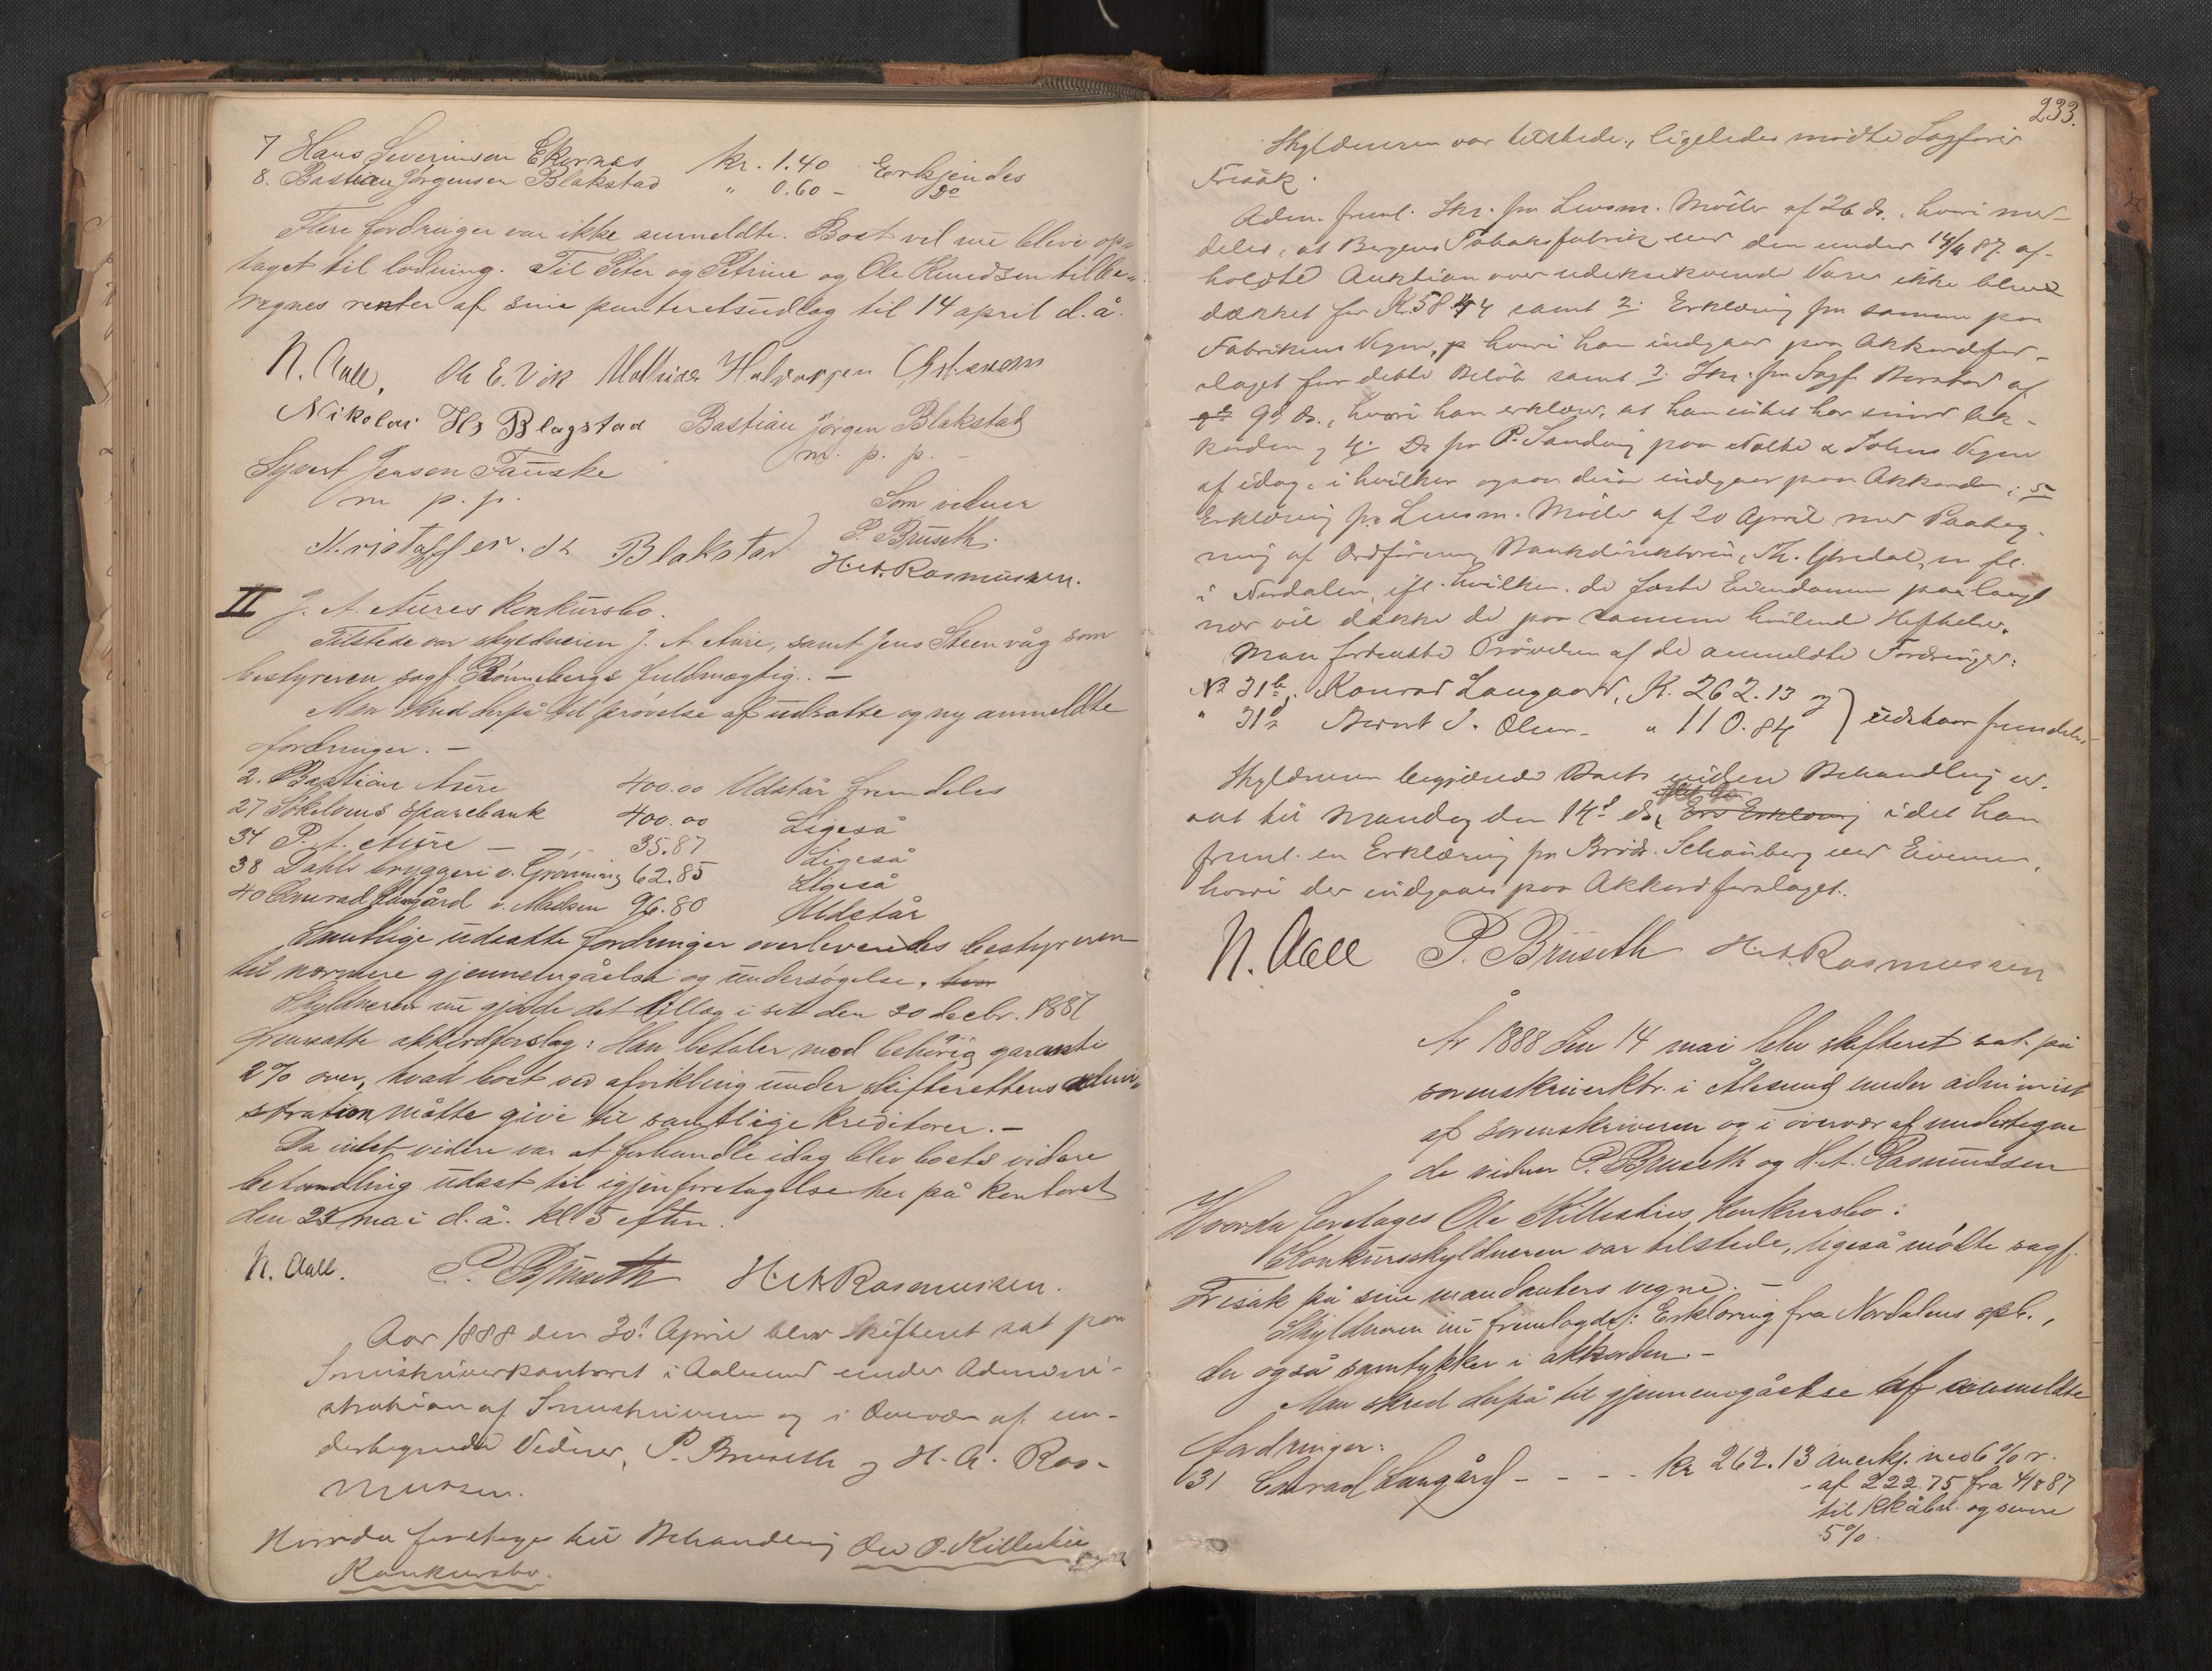 7 Hans Severinsen Ekornæs kr. 1.40 Erkjendes
8. Bastian Jørgensen Blakstad " 0.60 - Do
Flere fordringer var ikke anmeldte. Boet vil nu blive op-
taget til lodning. Til Peter og Petrine og Ole Knudsen tilbe-
regnes renter af sine panteretsudlæg til 14 april d.å.
N. Aall, Ole E. Vik Mathias Halvorsen
Nikolai Hs Blagstad Bastian Jørgen Blakstad
m. p. p. -
Syvert Jensen Fauske
m p. p. Som vidner
P. Bruseth.
Kristoffer Blakstad H. A. Rasmussen.
II J. A. Aures konkursbo.
Tilstede var skyldneren J. A. Aure, samt Jens Steenvåg som
bestyreren sagf. Rønnebergs fuldmægtig. -
Man skred derpå til prøvelse af udsatte og ny anmeldte
fordringer. -
2. Bastian Aure 400.00 Udstår fremdeles
27 Søkelvens sparebank 400.00 Ligeså
34 P. A. Aure - 35.87 Ligeså
38 Dahls bryggeri v. Grønning 62.85 Ligeså
40 Conrad Langård v. Madsen 96.80 Udstår
Samtlige udsatte fordringer overleveredes bestyreren
til nærmere gjennemgåelse og undersøgelse.
Skyldneren nu gjorde det tillæg i sit den 30 decbr. 1887
fremsatte akkordforslag: Han betaler mod behørig garanti
2% over, hvad boet ved afvikling under skifterettens admini-
stration måtte give til samtlige kreditorer. -
Da intet videre var at forhandle idag blev boets videre
behandling udsat til igjenforetagelse her på kontoret
den 23 mai d.å. kl 5 efterm.
N. Aall. P. Bruseth H. A. Rasmussen.
Aar 1888 den 30. April blev Skifteret sat paa
Sorenskriverkontoret i Aalesund under Admini-
stration af Sorenskriveren og i Overvær af un-
dertegnede Vidner, P. Bruseth og H. A. Ras-
mussen.
Hvorda foretoges til Behandling Ole O. Killestins
Konkursbo.
233.
Skyldneren var tilstede, ligeledes mødte Sagfører
Frisak.
Adm. freml. Skr. fra Lensm. Møller af 26 ds., hvori med-
deles, at Bergens Tobaksfabrik ved den under 14/4 87 af-
holdte Auktion over udeksekverede Varer ikke blev
dækket for Kr 58.44 samt 2. Erklæring fra samme paa
Fabrikens Vegne, hvori han indgaar paa Akkordfor-
slaget for dette Beløb samt 3. Skr. fra Sagf. af
9d ds., hvori han erklærer, at han intet har imod Ak-
korden, 4. Do fra P. Sandvig paa Nolte & Vegne
af idag, i hvilken ogsaa denne indgaar paa Akkorden, 5
Erklæring fra Lensm. Møller af 20 April med Paateg-
ning af Ordføreren, Bankdirektøren, m fl.
i Nordalen, ifl. hvilken de faste Eiendomme paa langt
nær vil dække de paa samme hvilende Heftelser.
Man fortsatte Prøvelsen af de anmeldte Fordringer:
No 31b, Konrad Langaard, K. 262.13 og
" 31 Bernt J. Olsen - " 110.84 udstaar fremdeles
Skyldneren begjærede Boets videre Behandling ud-
sat til Mandag den 14d ds, idet han
freml. en Erklæring fra Brødr. Schauberg ved Evensen,
hvori der indgaaes paa Akkordforslaget.
N. Aall P. Bruseth H. A. Rasmussen
År 1888 den 14 mai blev skifteret sat på
sorenskriverktr. i Ålesund under administ
af sorenskriveren og i overvær af undertegne
de vidner P. Bruseth og H. A. Rasmussen
Hvorda foretoges Ole Killestins konkursbo:
Konkursskyldneren var tilstede, ligeså mødte sagf.
Frisak på sine mandanters vegne. -
Skyldneren nu fremlagde: Erklæring fra Nordalens spb.,
der også samtykker i akkorden -
Man skred derpå til gjennemgåelse af anmeldte
fordringer:
31 Conrad Langård - - - - kr 262.13 anerkj. med 6% r.
af 222.75 fra 4/8 87
til kkåbn. og senere
5%.